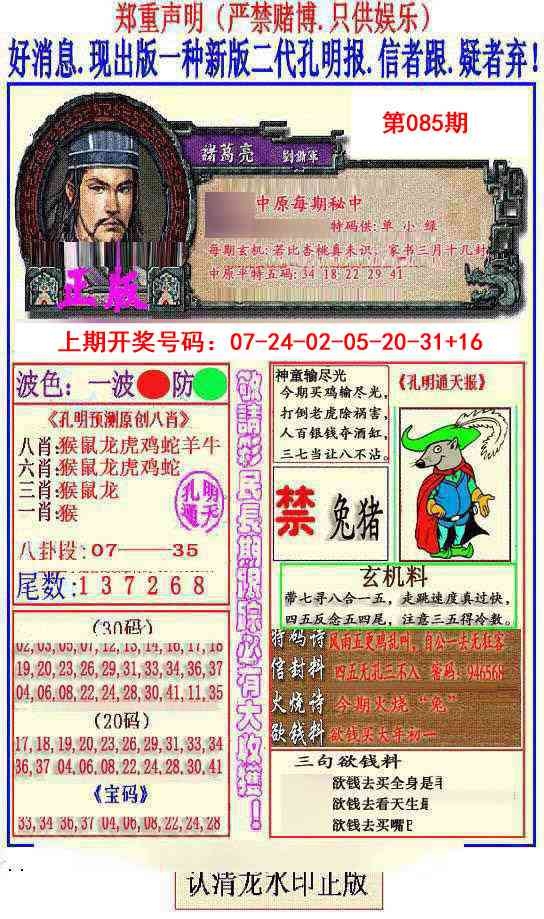 郑重声明（严禁赌博.只供娱乐）
好消息.现出版一种新版二代孔明报.信者跟.疑者弃！
第085期
諸葛亮
中原每期秘中
特码供:单 小 绿
每期玄机:若比杏桃真未识：家书三月十几封
中原平特五码:34 18 22 29 41
正版
上期开奖号码：07-24-02-05-20-31+16
波色：一波 防
《孔明预测原创八肖》
八肖:猴鼠龙虎鸡蛇羊牛
六肖:猴鼠龙虎鸡蛇
三肖:猴鼠龙
一肖:猴
孔明
通天
八卦段:07——35
尾数:137268
(30码)
02,03,05,07,12,13,14,16,17,18
19,20,23,26,29,31,33,34,36,37
04,06,08,22,24,28,30,41,11,35
(20码)
17,18,19,20,23,26,29,31,33,34
36,37 04,06,08,22,24,28,30,41
《宝码》
33,34 36,37 04,06,08,22,24,28
敬請彩民長期跟踪必有大收獲！
神童输尽光
今期买鸡输尽光,
打倒老虎除祸害,
人百银钱夺酒缸,
三七当让八不沾。
《孔明通天报》
禁 兔猪
玄机料
带七寻八合一五，走跳速度真过快,
四五反念五四尾，注意三五得冷数。
特码诗 风雨五更鸡乱叫，自公一去无狂客
信封料 四五天孔三不入 密码：946568
火烧诗 今期火烧“兔”
欲钱料 欲钱买大年初一
三句欲钱料
欲钱去买全身是
欲钱去看天生
欲钱去买嘴
认清龙水印正版